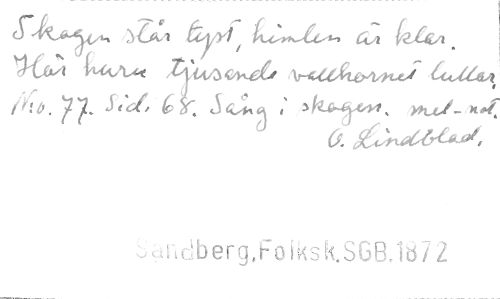 Skogen står tyst, himlen är klar.
Hör huru tjusande vallhornet lullar.
N:o. 77. Sid. 68. Sång i skogen. mel-not.
O. Lindblad.
Sandberg, Folksk. SGB. 1872